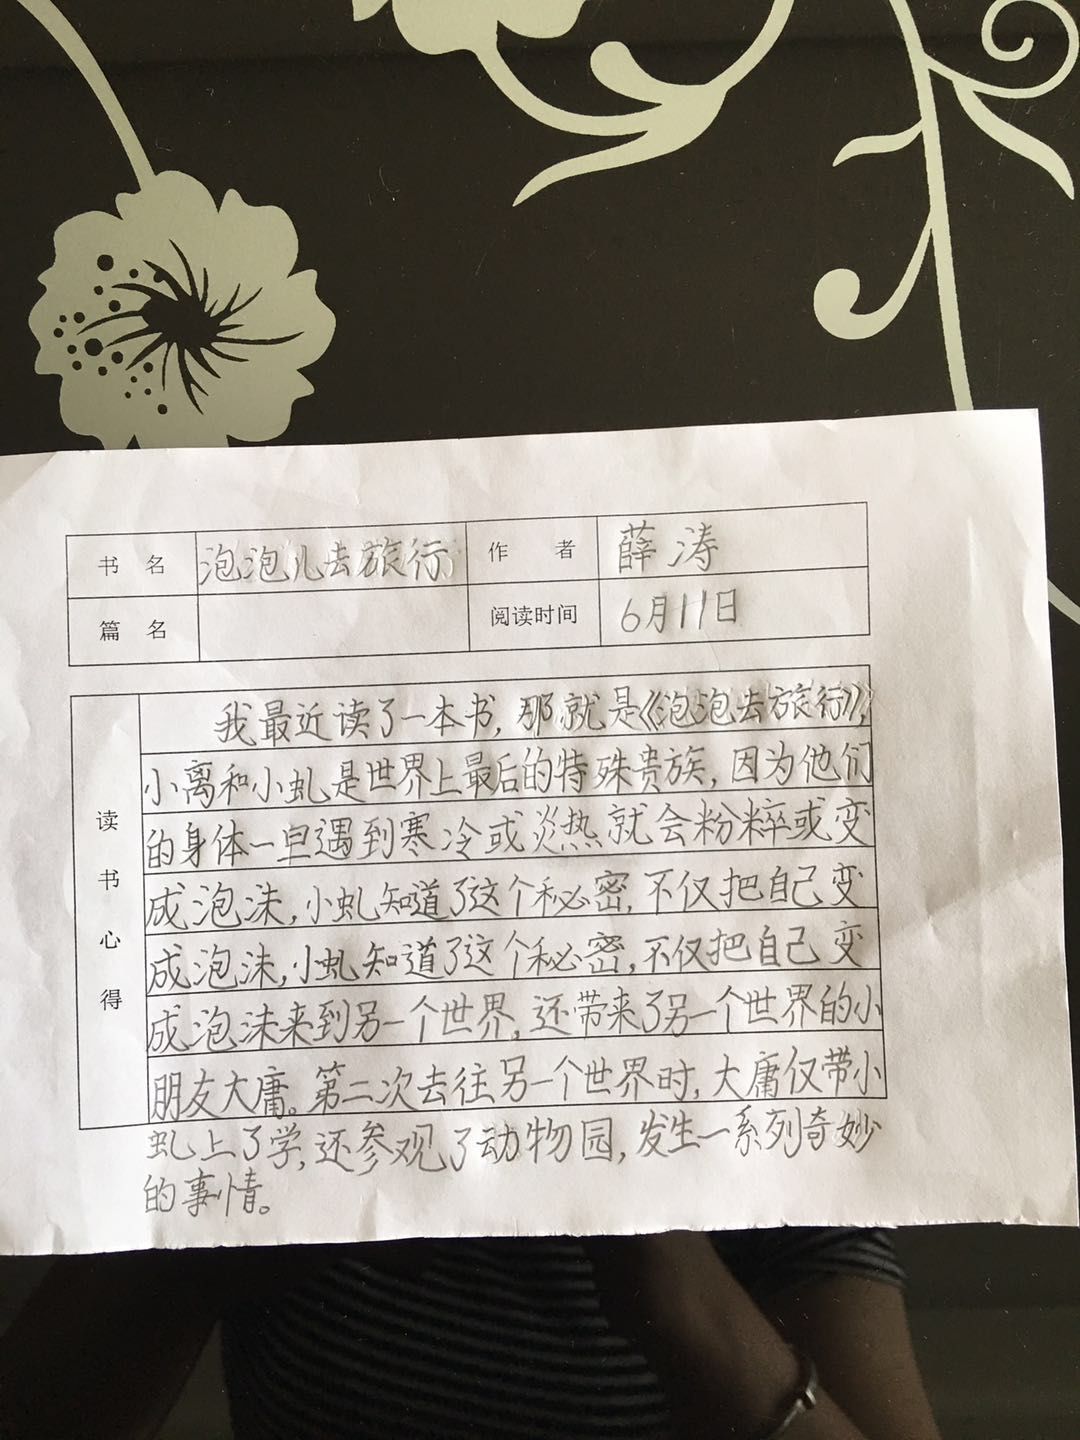 书 名 泡泡儿去旅行 作 者 薛涛
篇 名 阅读时间 6月11日
读书心得
我最近读了一本书，那就是《泡泡去旅行》，
小离和小虬是世界上最后的特殊贵族，因为他们
的身体一旦遇到寒冷或炎热就会粉粹或变
成泡沫，小虬知道了这个秘密，不仅把自己变
成泡沫，小虬知道了这个秘密，不仅把自己变
成泡沫来到另一个世界，还带来了另一个世界的小
朋友大庸。第二次去往另一个世界时，大庸仅带小
虬上了学，还参观了动物园，发生一系列奇妙
的事情。